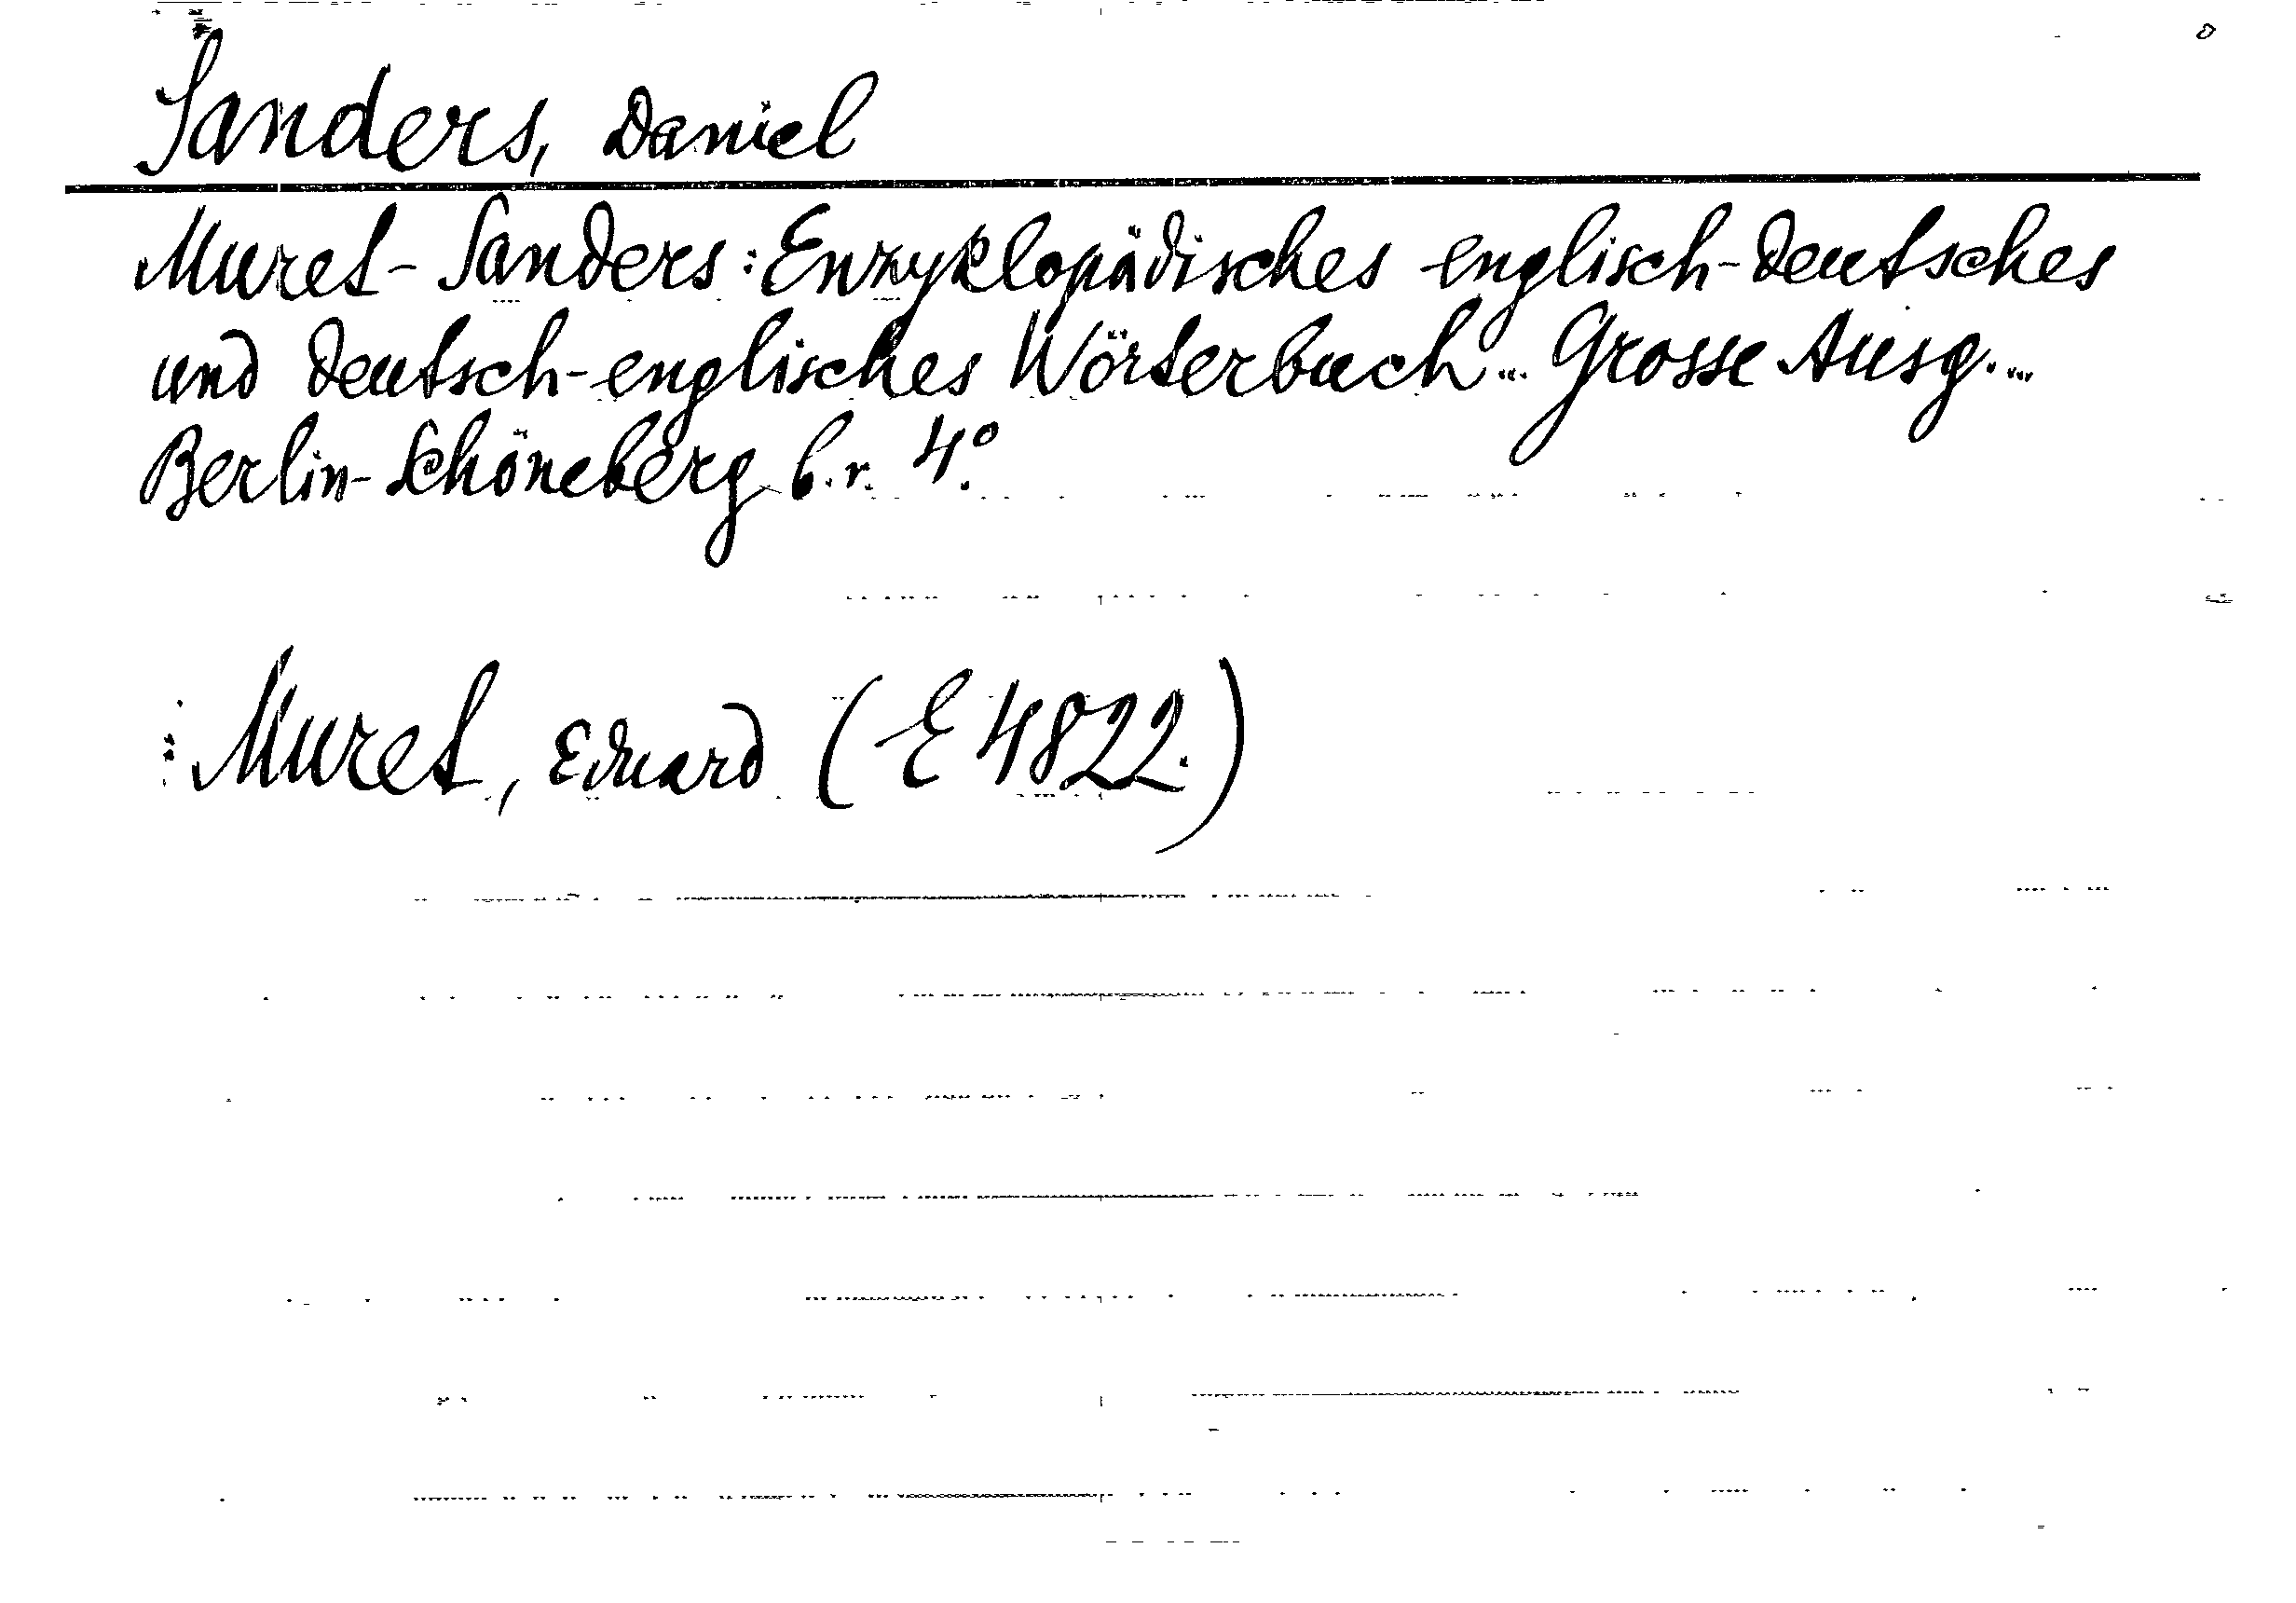 Sanders, Daniel
Muret-Sanders: Enzyklopädisches englisch-deutsches
und deutsch-englisches Wörterbuch... Grosse Ausg....
Berlin-Schöneberg b.r. 4°.
: Muret, Eduard (E 4822.)